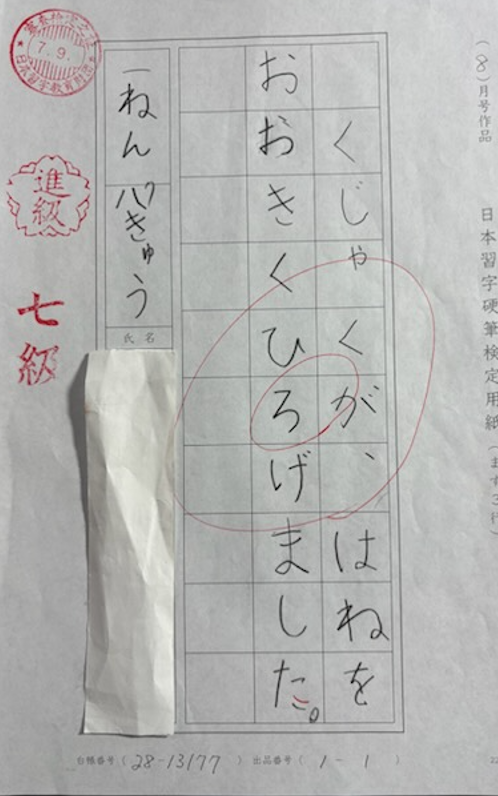 (8)月号作品
日本習字硬筆検定用紙(ます3行)
くじゃくが、はねを
おおきくひろげました。
一ねん 八きゅう
氏名
7.9.
進級
七級
(28-13177) 出品番号(1-1)
22